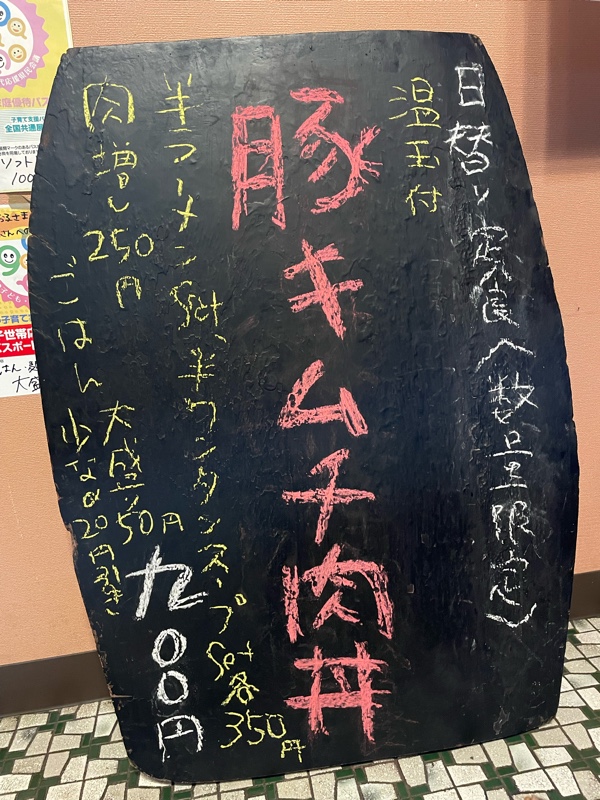 日替り定食(数量限定)
温玉付
豚キムチ肉丼
半ラーメンset、半ワンタンスープset各350円
肉増し250円
ごはん大盛り50円
少なめ20円引き
九00円
子育て支援パス
全国共通展
ソフト
100